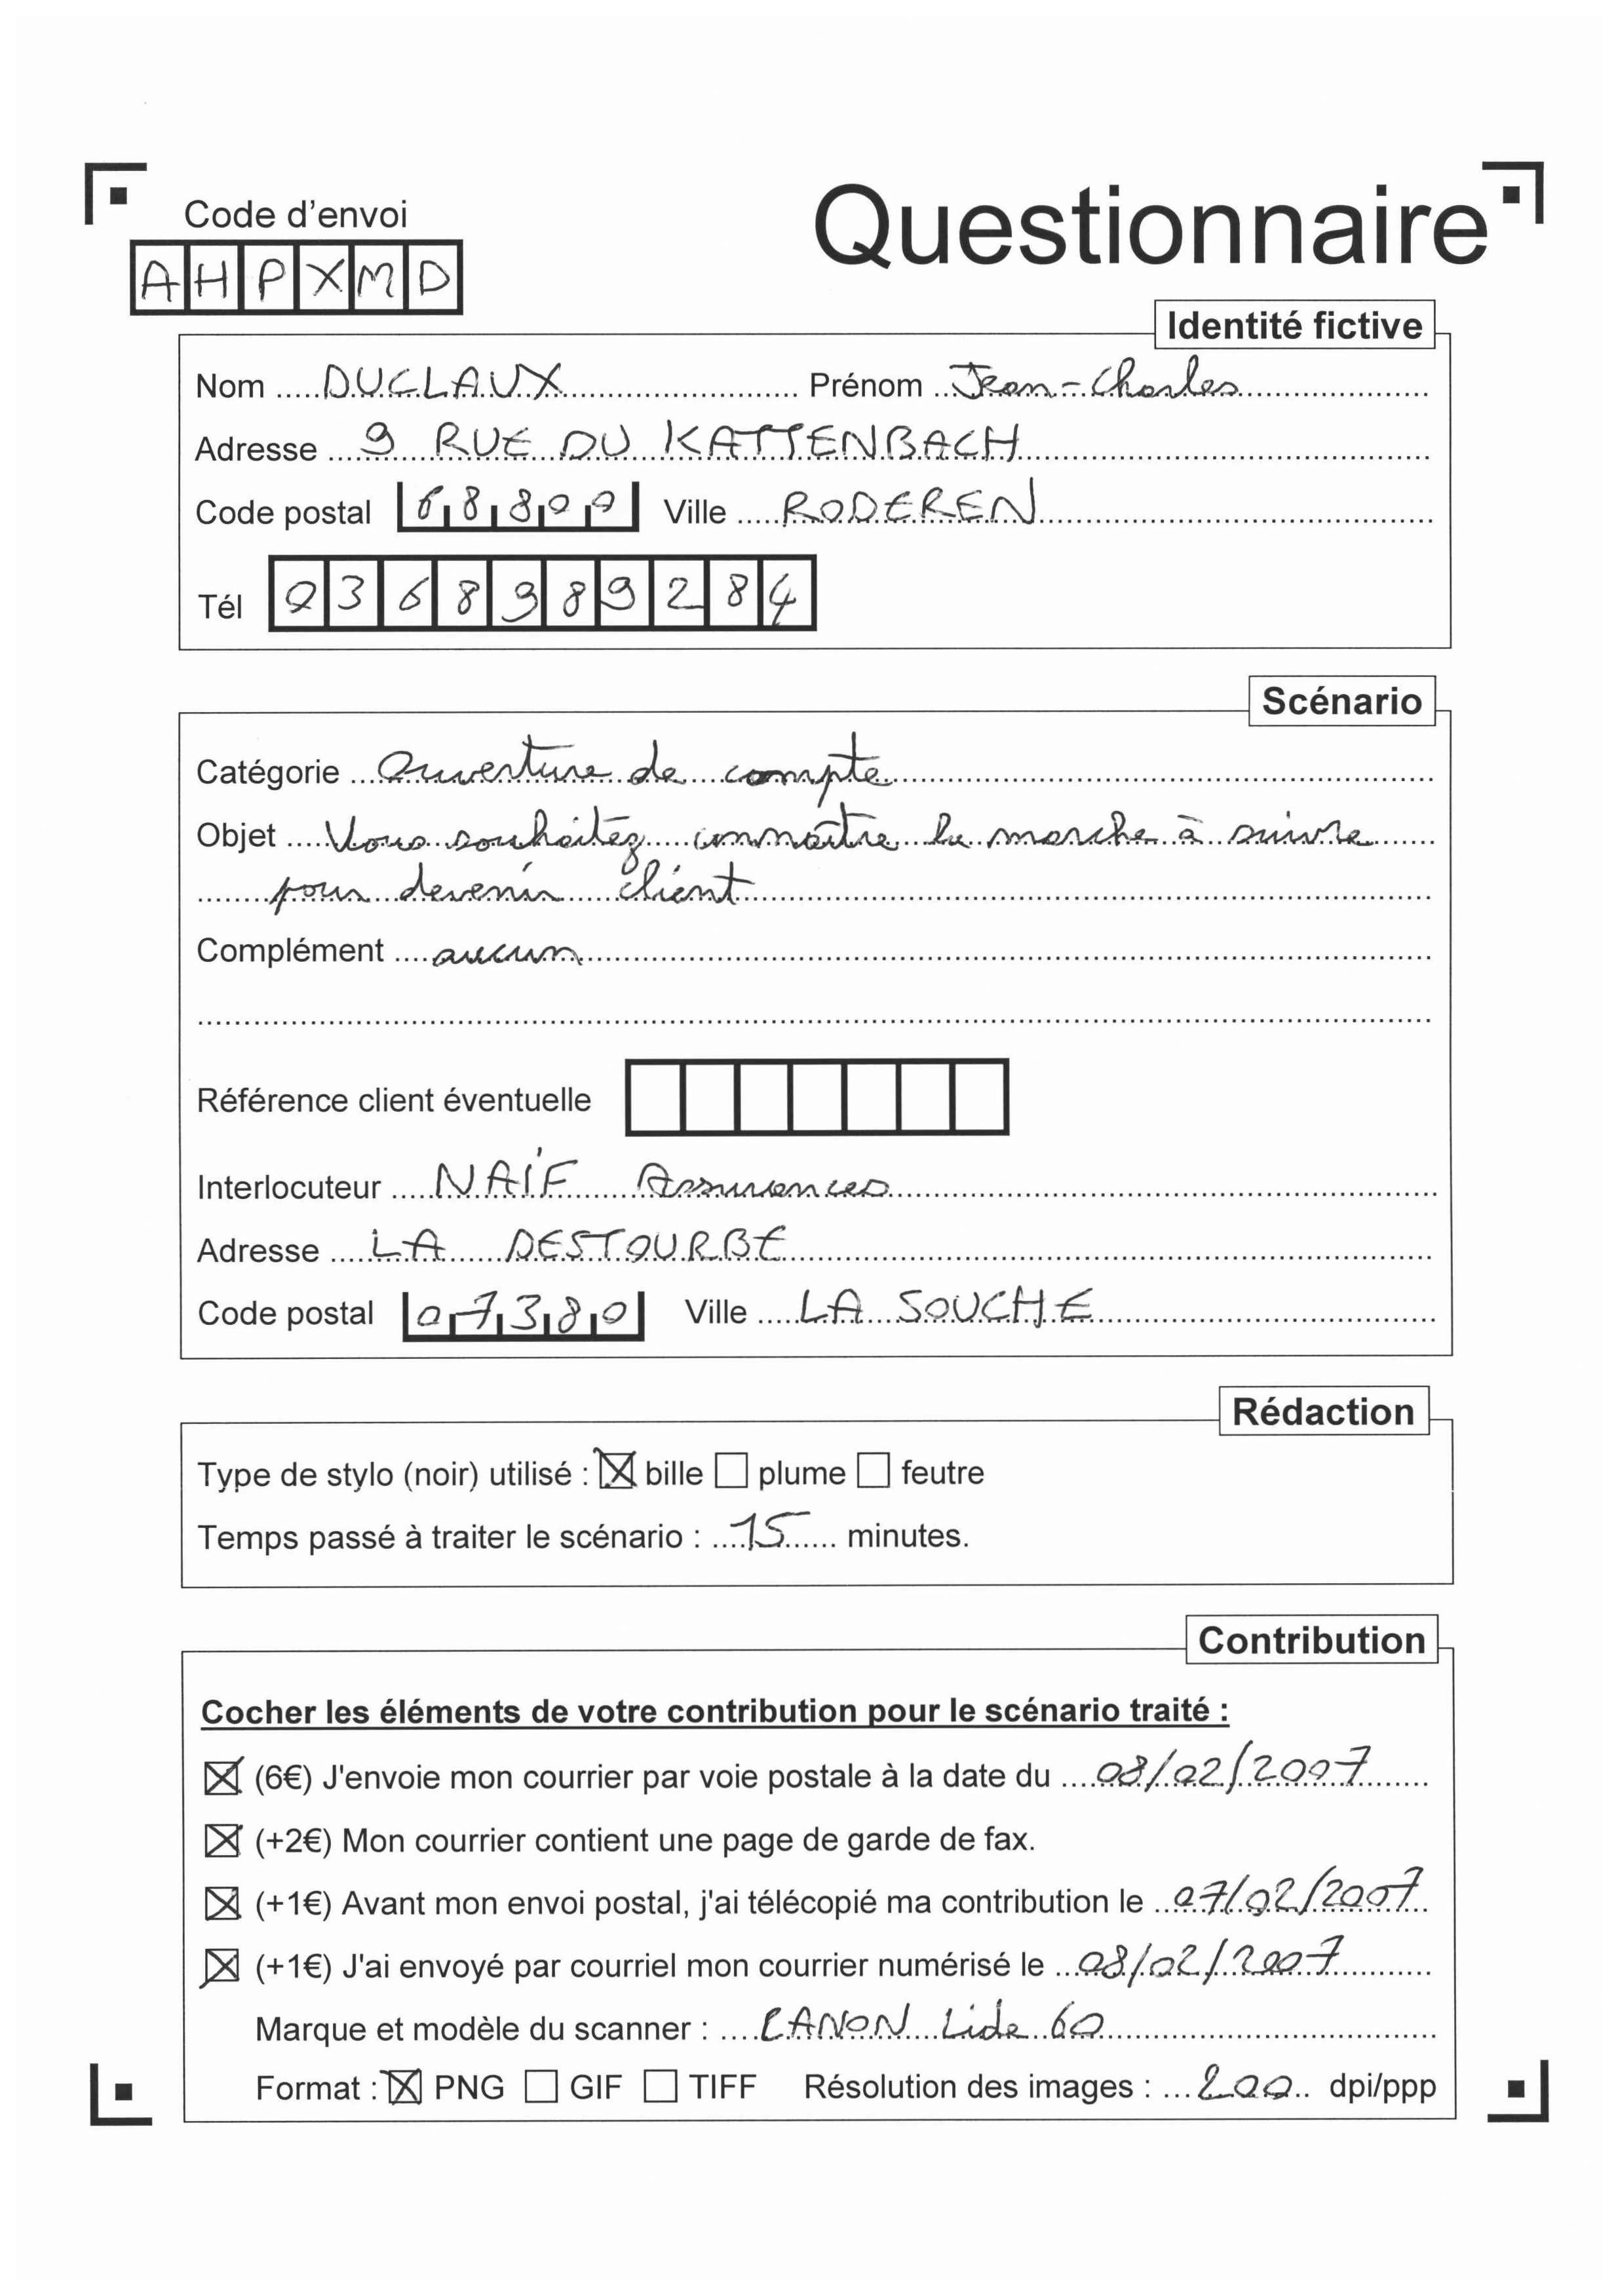 Code d'envoi
Questionnaire
AHPXMD
Identité fictive
Nom DUCLAUX Prénom Jean-Charles
Adresse 9 RUE DU KATTENBACH
Code postal 68800 Ville RODEREN
Tél 0368989284
Scénario
Catégorie Ouverture de compte
Objet Vous souhaitez connaître la marche à suivre
pour devenir client
Complément aucun
Référence client éventuelle
Interlocuteur NAÏF Assurances
Adresse LA DESTOURBE
Code postal 07380 Ville LA SOUCHE
Rédaction
Type de stylo (noir) utilisé : ☒ bille ☐ plume ☐ feutre
Temps passé à traiter le scénario : 15 minutes.
Contribution
Cocher les éléments de votre contribution pour le scénario traité :
☒ (6€) J'envoie mon courrier par voie postale à la date du 08/02/2007
☒ (+2€) Mon courrier contient une page de garde de fax.
☒ (+1€) Avant mon envoi postal, j'ai télécopié ma contribution le 07/02/2007
☒ (+1€) J'ai envoyé par courriel mon courrier numérisé le 08/02/2007
Marque et modèle du scanner : CANON Lide 60
Format : ☒ PNG ☐ GIF ☐ TIFF Résolution des images : 200 dpi/ppp